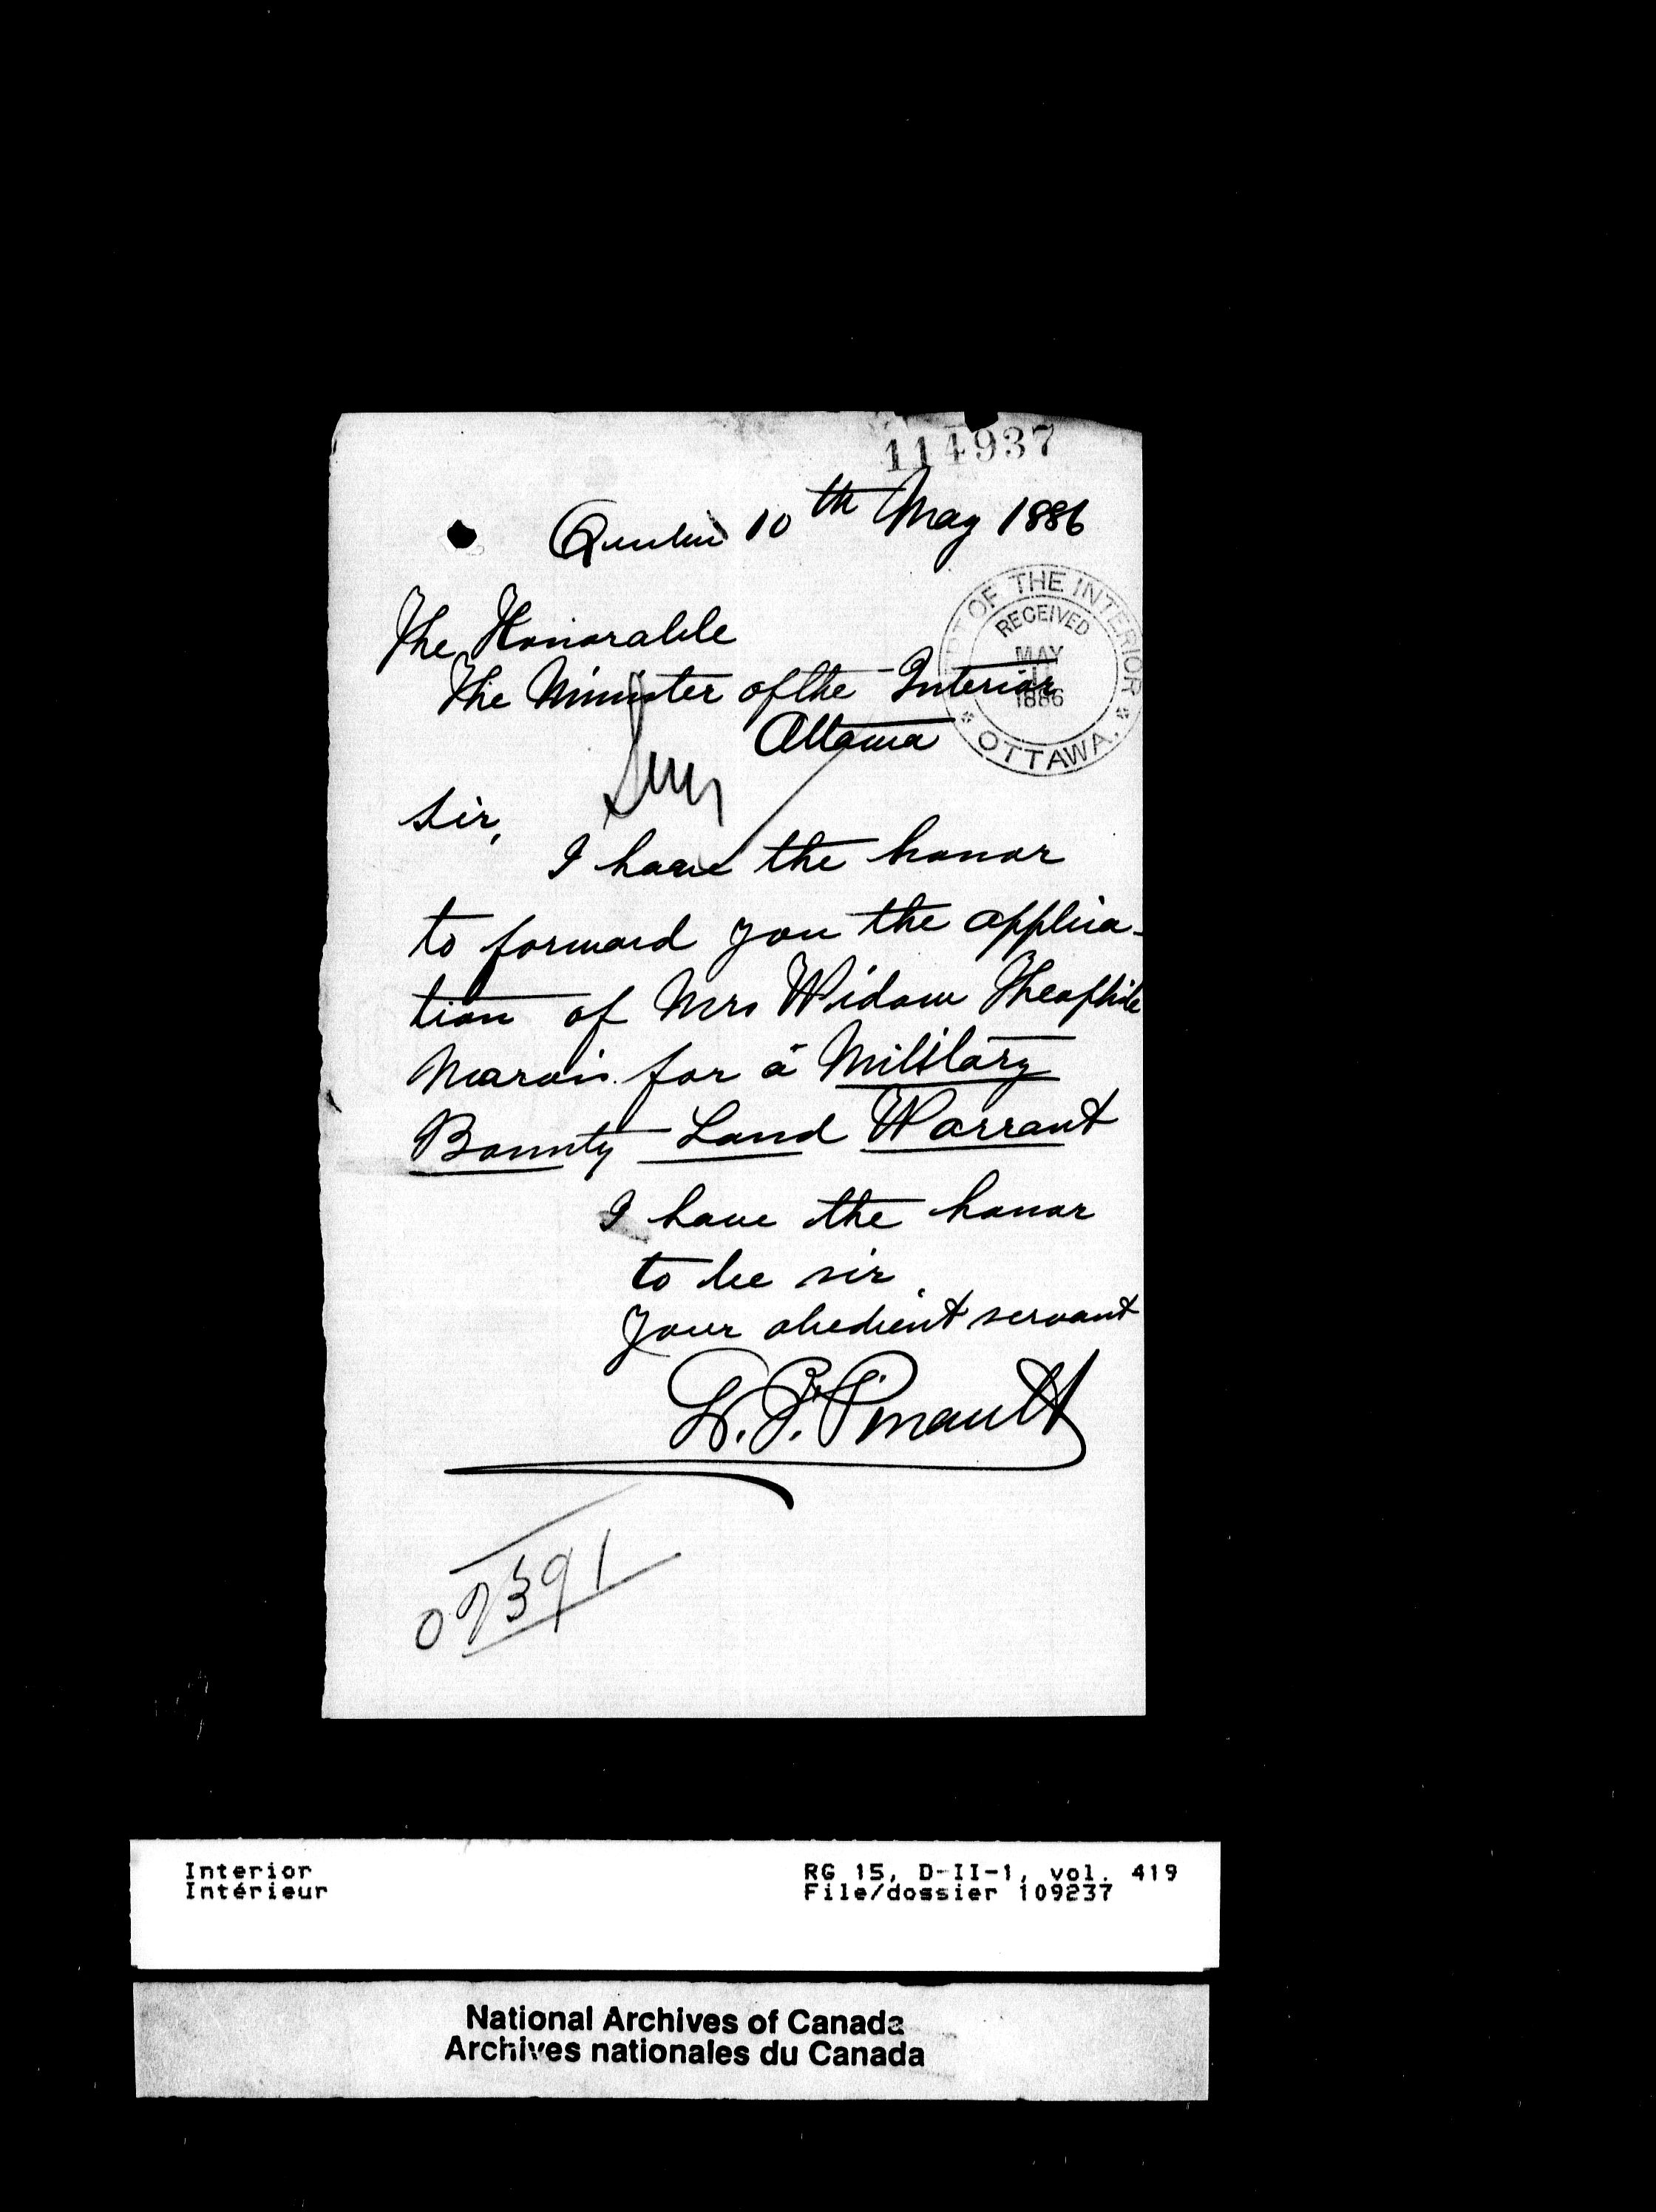 114937
Quebec 10th May 1886
The Honorable
The Minister of the Interior
Ottawa
DEPT OF THE INTERIOR
RECEIVED
MAY
11
1886
OTTAWA.
Sir,
I have the honor
to forward you the applica-
tion of Mrs Widow Theophile
Marois for a Military
Bounty Land Warrant
I have the honor
to be sir
your obedient servant
L. F. Pinault
Interior
Intérieur
RG 15, D-II-1, vol. 419
File/dossier 109237
National Archives of Canada
Archives nationales du Canada